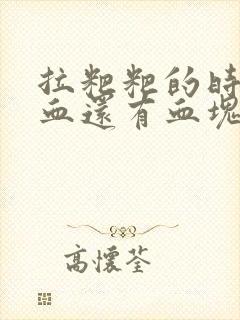 拉粑粑的時
血還有血塊
高懷荃